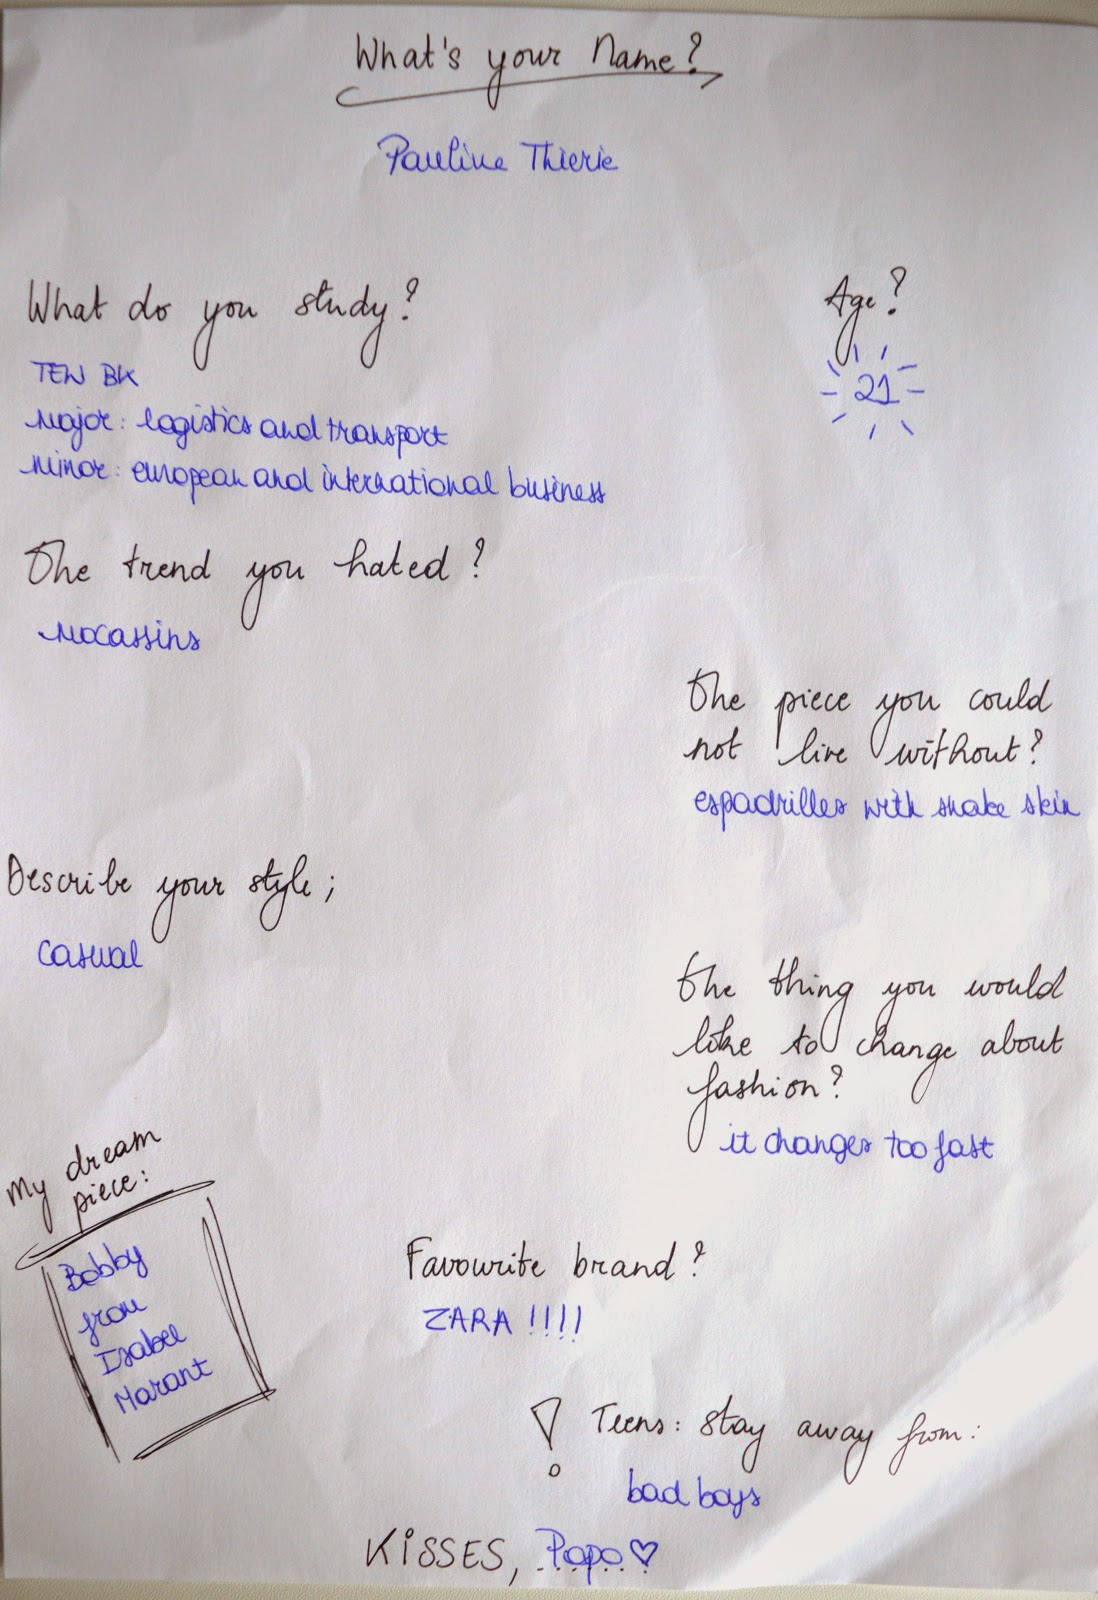 What's your Name?
Pauline Thierie
What do you study?
TEW BK
Major: logistics and transport
Minor: european and international business
Age?
21
The trend you hated?
Mocassins
The piece you could
not live without?
espadrilles with snake skin
Describe your style;
casual
The thing you would
like to change about
fashion?
it changes too fast
My dream
piece:
Bobby
from
Isabel
Marant
Favourite brand?
ZARA !!!!
! Teens: stay away from:
bad boys
KISSES, Popo ♡